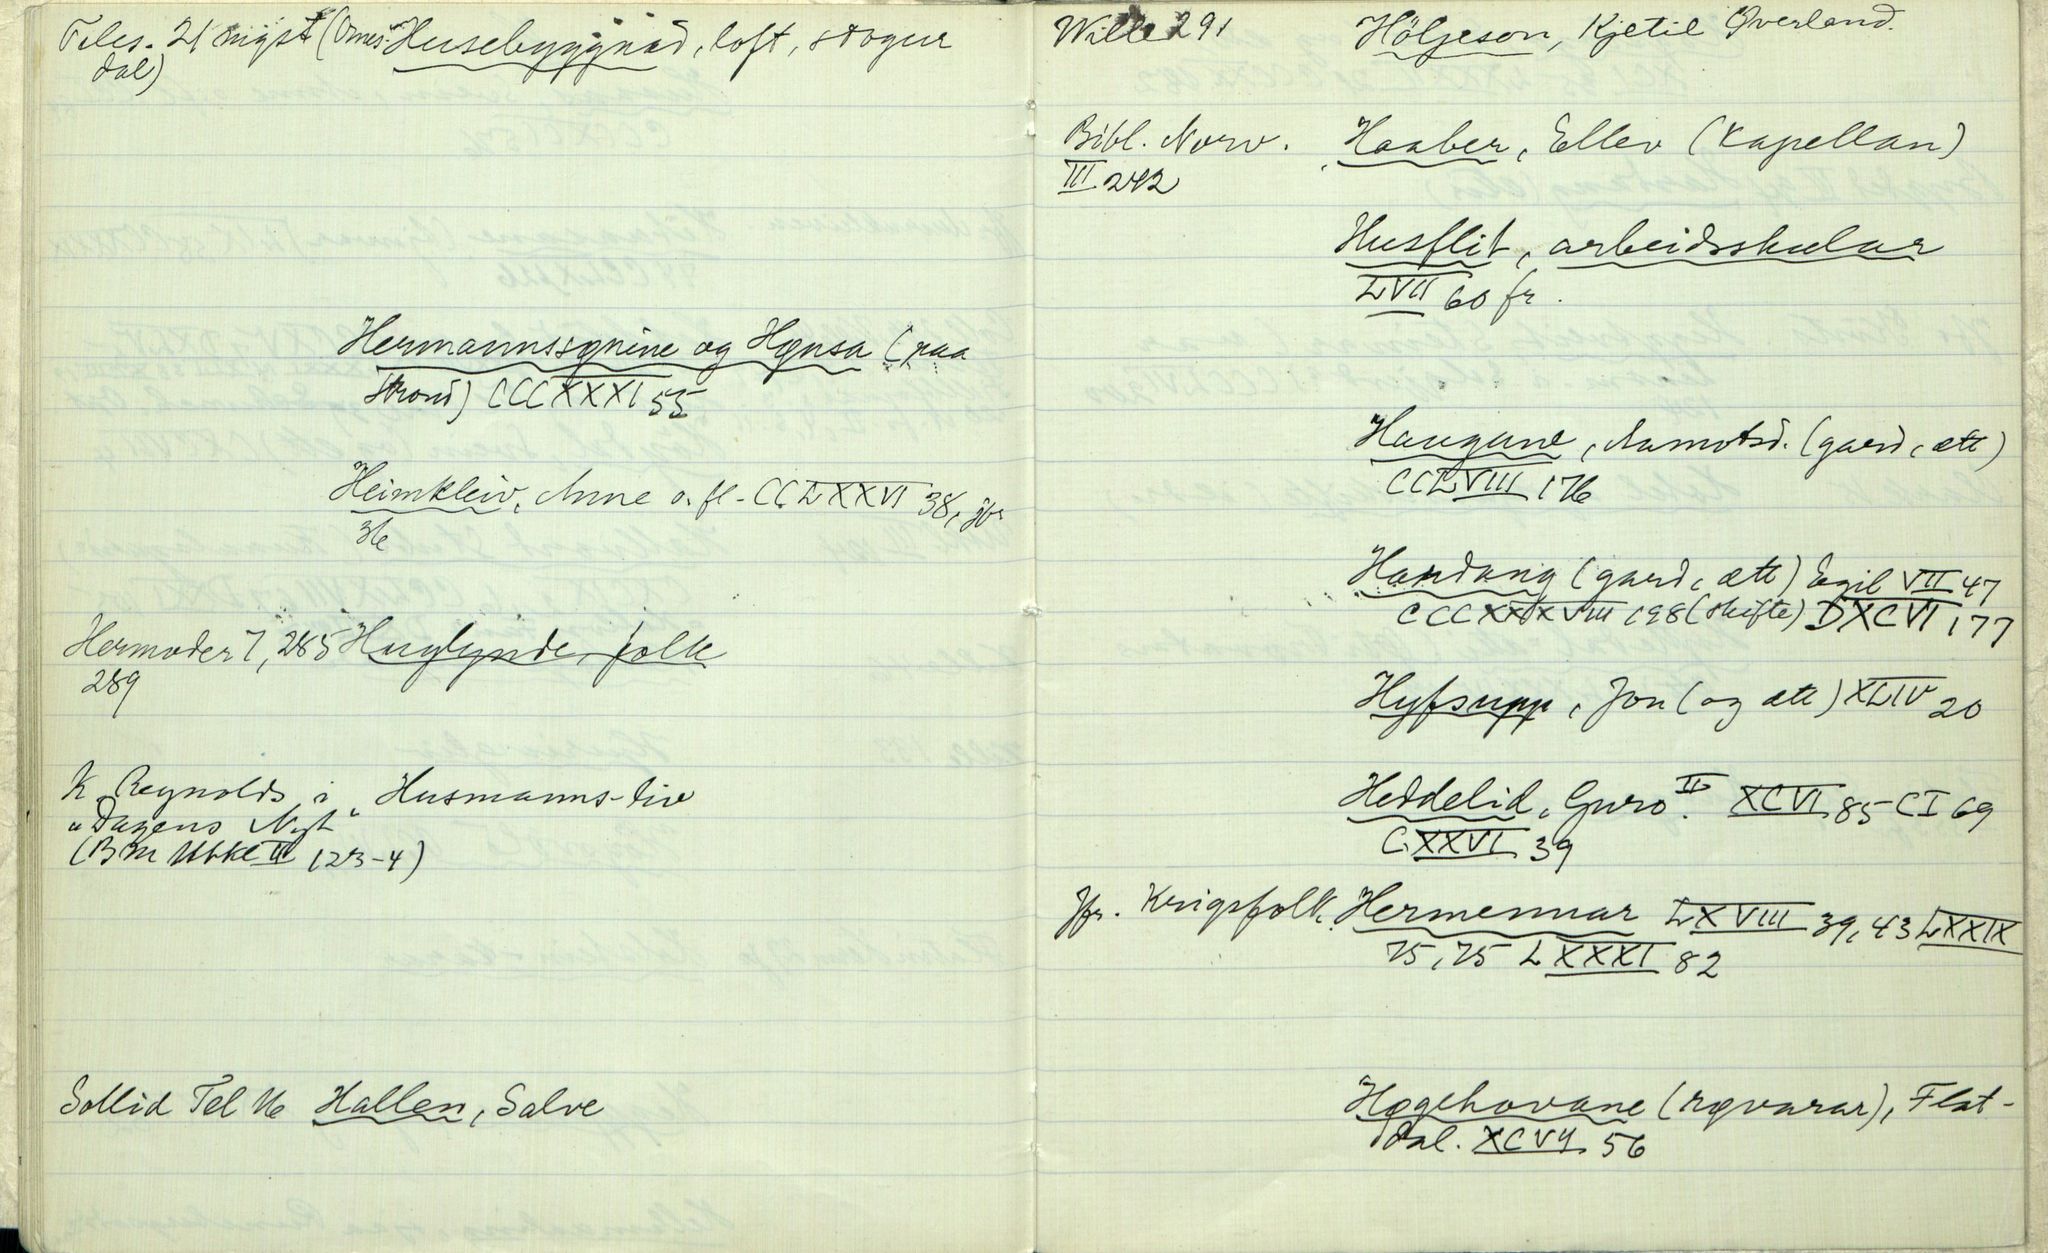 Teles. 21 migst (Omes- Husebyggnad, loft, stogur
dal)
Hermannssynine og Hønsa (paa
Strond) CCCXXXI 55
Heimkleiv, Anne o. fl. CCLXXVI 38, jvr
36
Hermoder 7, 285 Huglynde, folk
289
K. Reynolds i Husmanns-liv
"Dagens Nyt"
(Bm Utkl II 123-4)
Sollid Tel 16 Hallen, Salve
Wille 291 Höljeson, Kjetil Øverland.
Bibl. Norv. Haaber, Ellev (kapellan)
III 242
Husflit, arbeidsskular
LVII 60 fr.
Haugane, Aamotsd. (gard, ætt)
CCLVIII 176
Handang (gard, ætt) Egil VII 47
CCCXXXXVIII 198 (skifte) DXCVI 177
Hyfsupp, Jon (og ætt) XLIV 20
Heddelid, Guro II. XCVI 85 CI 69
CXXVI 39
Jfr. Krigsfolk. Hermennar LXVIII 39, 43 LXXIX
75, 75 LXXXI 82
Høgehovane (røvarar), Flat-
dal. XCVII 56